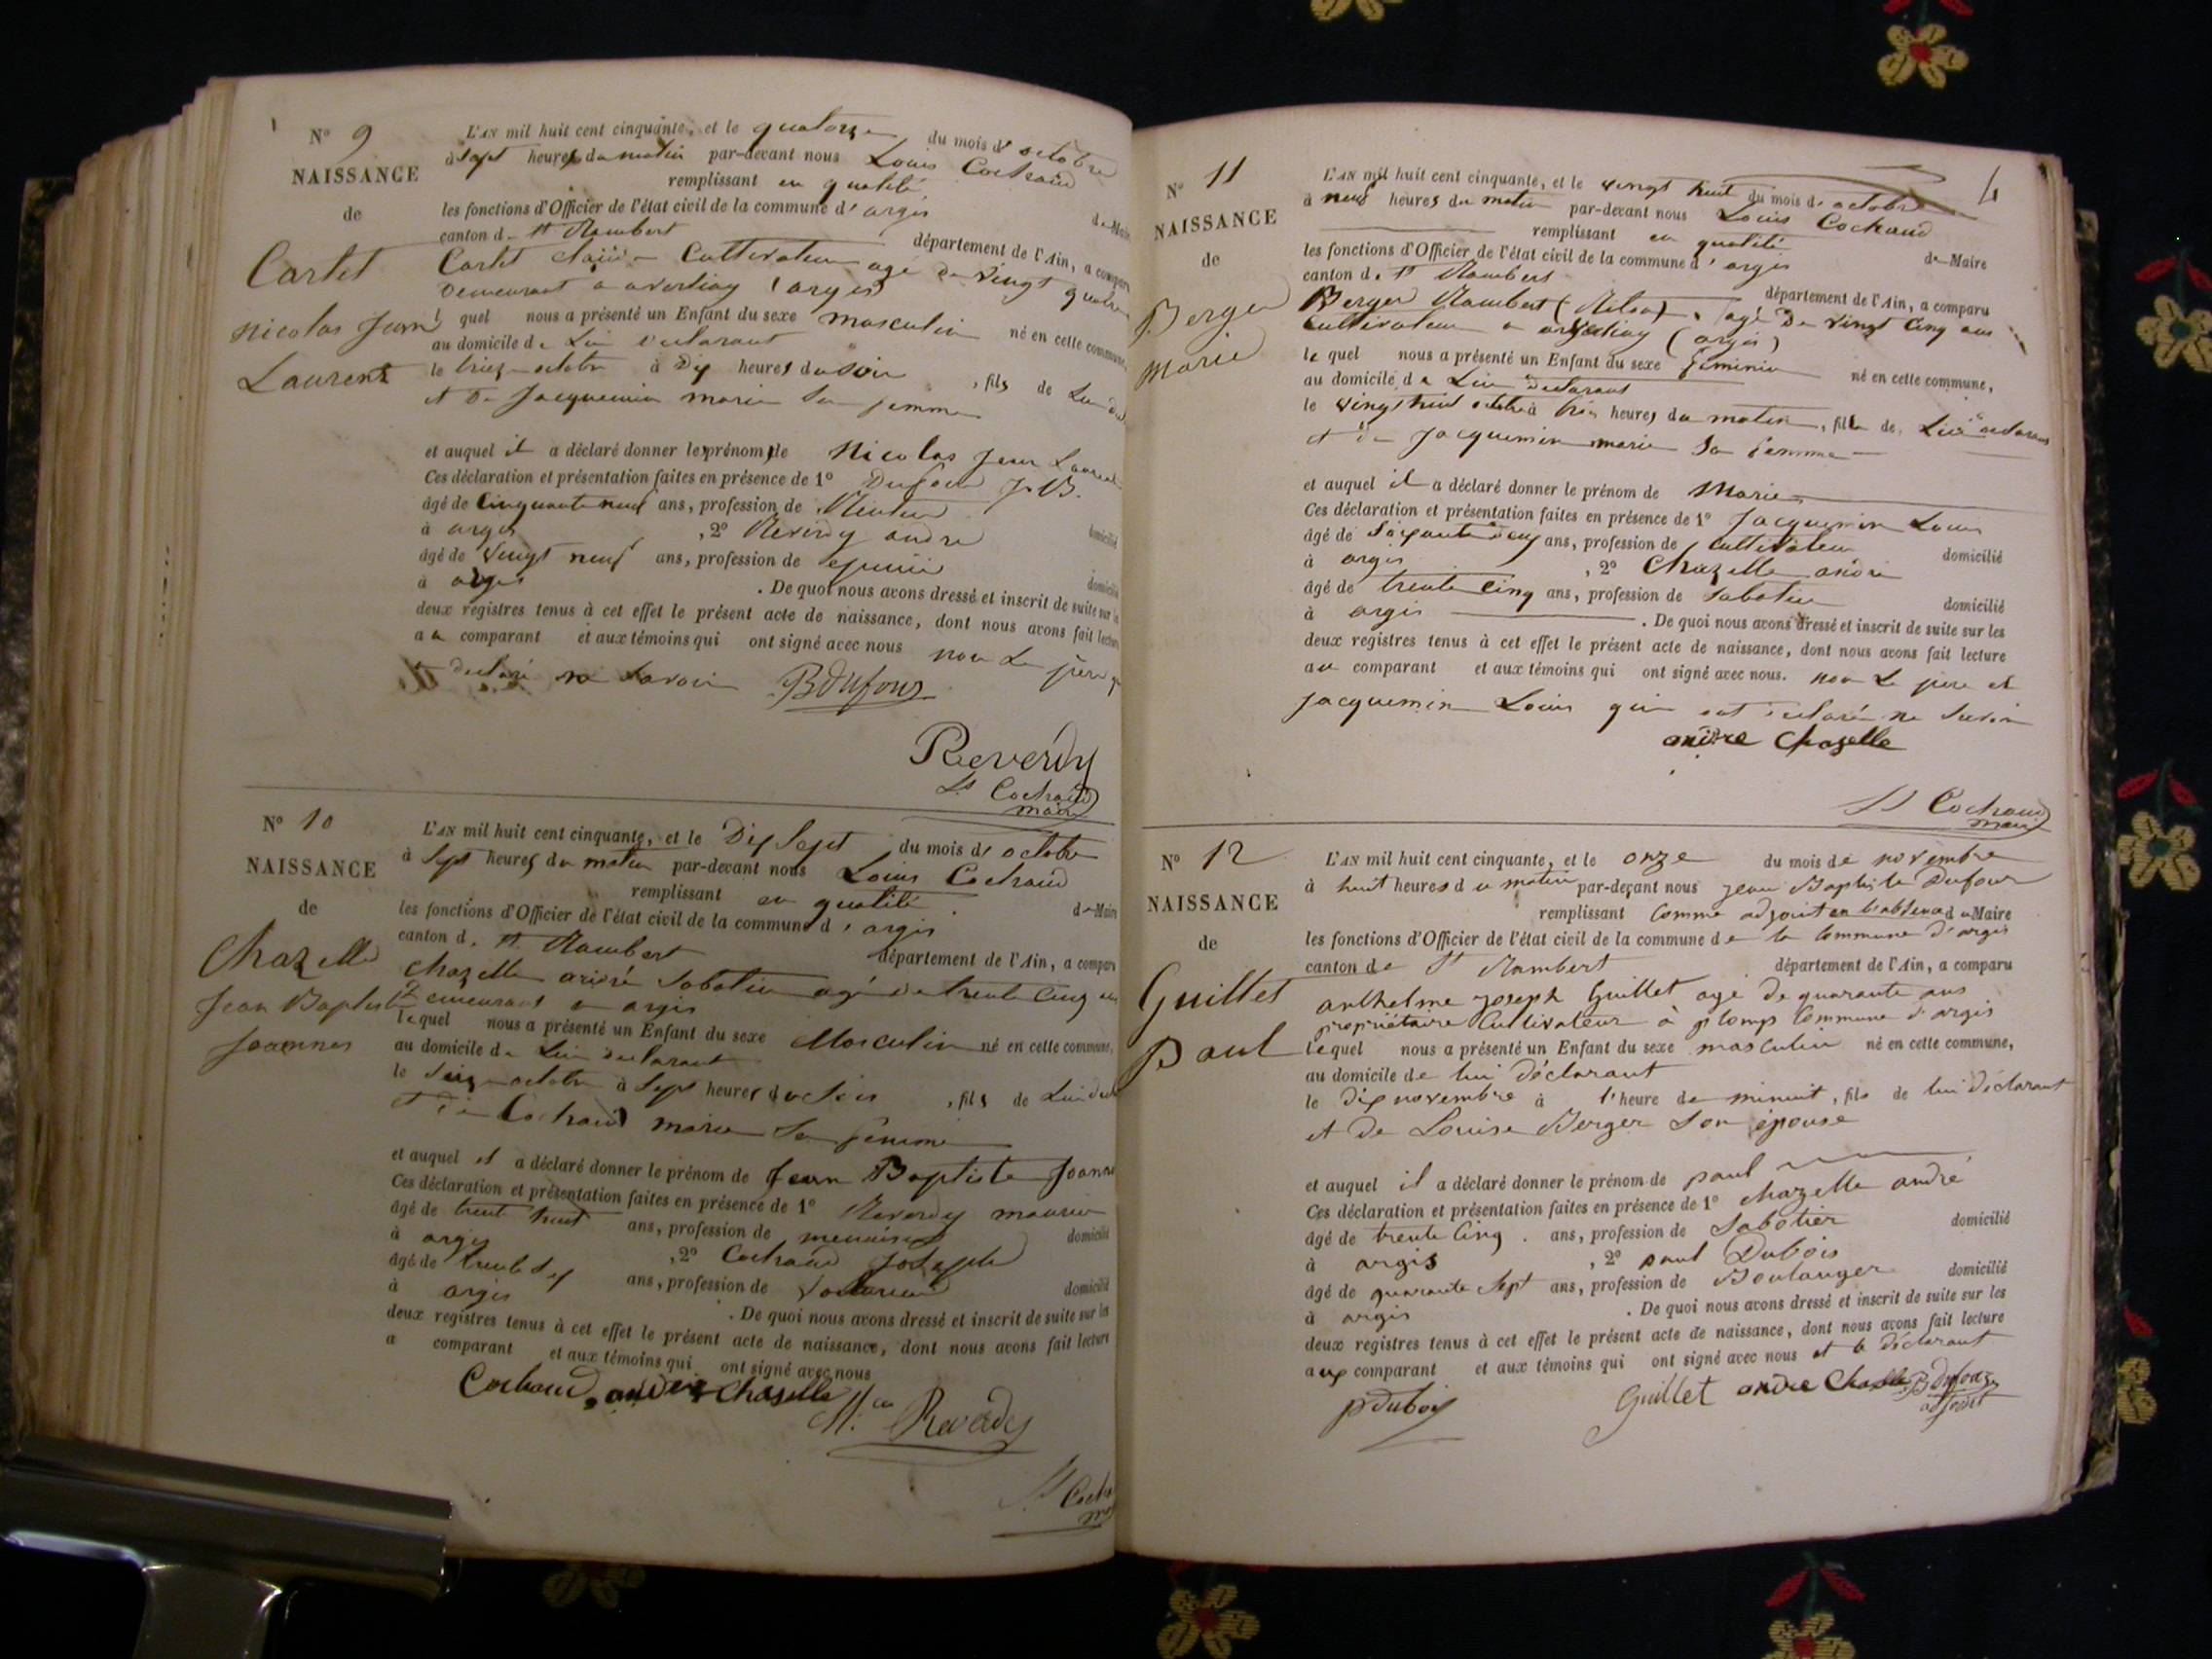 N° 9
NAISSANCE
de
Cartet
Nicolas Jean
Laurent
L'AN mil huit cent cinquante, et le quatorze du mois d' octobre
à sept heures du matin par-devant nous Louis Cochaud
remplissant en qualité de Maire
les fonctions d'Officier de l'état civil de la commune d' argis
canton de St Rambert département de l'Ain, a comparu
Cartet Cultivateur agé de vingt quatre
Demeurant a (argis)
lequel nous a présenté un Enfant du sexe masculin né en cette commune,
au domicile de Lui déclarant
le treize octobre à dix heures du soir, fils de Lui
et de Jacquemin marie sa femme
et auquel il a déclaré donner les prénoms de Nicolas Jean Laurent
Ces déclaration et présentation faites en présence de 1° Dufour J. B.
âgé de cinquante neuf ans, profession de Rentier domicilié
à argis, 2° Reverdy andré
âgé de vingt neuf ans, profession de domicilié
à argis. De quoi nous avons dressé et inscrit de suite sur les
deux registres tenus à cet effet le présent acte de naissance, dont nous avons fait lecture
au comparant et aux témoins qui ont signé avec nous non le père
déclaré ne savoir BDufour
Reverdy
Ls Cochaud
maire
N° 10
NAISSANCE
de
Chazelle
Jean Baptiste
Joannes
L'AN mil huit cent cinquante, et le Dix sept du mois d' octobre
à sept heures du matin par-devant nous Louis Cochaud
remplissant en qualité de Maire
les fonctions d'Officier de l'état civil de la commune d' argis
canton de St Rambert département de l'Ain, a comparu
Chazelle andré sabotier agé de trente cinq ans
Demeurant a argis
lequel nous a présenté un Enfant du sexe Masculin né en cette commune,
au domicile de Lui déclarant
le seize octobre à sept heures du soir, fils de Lui
et de Cochaud marie sa femme
et auquel il a déclaré donner le prénom de Jean Baptiste Joannes
Ces déclaration et présentation faites en présence de 1° Reverdy maurice
âgé de trente huit ans, profession de menuisier domicilié
à argis, 2° Cochaud Joseph
âgé de ans, profession de domicilié
à argis. De quoi nous avons dressé et inscrit de suite sur les
deux registres tenus à cet effet le présent acte de naissance, dont nous avons fait lecture
a comparant et aux témoins qui ont signé avec nous
Cochaud andré Chazelle
Reverdy
N° 11
NAISSANCE
de
Berger
Marie
L'AN mil huit cent cinquante, et le vingt huit du mois d' octobre
à neuf heures du matin par-devant nous Louis Cochaud
remplissant en qualité de Maire
les fonctions d'Officier de l'état civil de la commune d' argis
canton de St Rambert département de l'Ain, a comparu
Berger Rambert, agé de vingt cinq ans
cultivateur a (argis)
lequel nous a présenté un Enfant du sexe féminin né en cette commune,
au domicile de Lui déclarant
le vingt huit octobre à trois heures du matin, fille de Lui déclarant
et de Jacquemin marie sa femme
et auquel il a déclaré donner le prénom de Marie
Ces déclaration et présentation faites en présence de 1° Jacquemin Louis
âgé de soixante deux ans, profession de cultivateur domicilié
à argis, 2° Chazelle andré
âgé de trente cinq ans, profession de sabotier domicilié
à argis. De quoi nous avons dressé et inscrit de suite sur les
deux registres tenus à cet effet le présent acte de naissance, dont nous avons fait lecture
au comparant et aux témoins qui ont signé avec nous. non le père et
Jacquemin Louis qui ont déclaré ne savoir
andre Chazelle
Ls Cochaud
maire
N° 12
NAISSANCE
de
Guillet
Paul
L'AN mil huit cent cinquante, et le onze du mois de novembre
à huit heures du matin par-devant nous jean Baptiste Dufour
remplissant comme adjoint en l'absence du Maire
les fonctions d'Officier de l'état civil de la commune de la commune d'argis
canton de St Rambert département de l'Ain, a comparu
anthelme joseph Guillet agé de quarante ans
propriétaire Cultivateur à plomps Commune d'argis
lequel nous a présenté un Enfant du sexe masculin né en cette commune,
au domicile de lui déclarant
le dix novembre à l'heure de minuit, fils de lui déclarant
et de Louise Berger son épouse
et auquel il a déclaré donner le prénom de paul
Ces déclaration et présentation faites en présence de 1° chazelle andré
âgé de trente cinq ans, profession de sabotier domicilié
à argis, 2° paul Dubois
âgé de quarante sept ans, profession de Boulanger domicilié
à argis. De quoi nous avons dressé et inscrit de suite sur les
deux registres tenus à cet effet le présent acte de naissance, dont nous avons fait lecture
aux comparant et aux témoins qui ont signé avec nous et le déclarant
pDubois Guillet andre Chazelle BDufour
adjoint